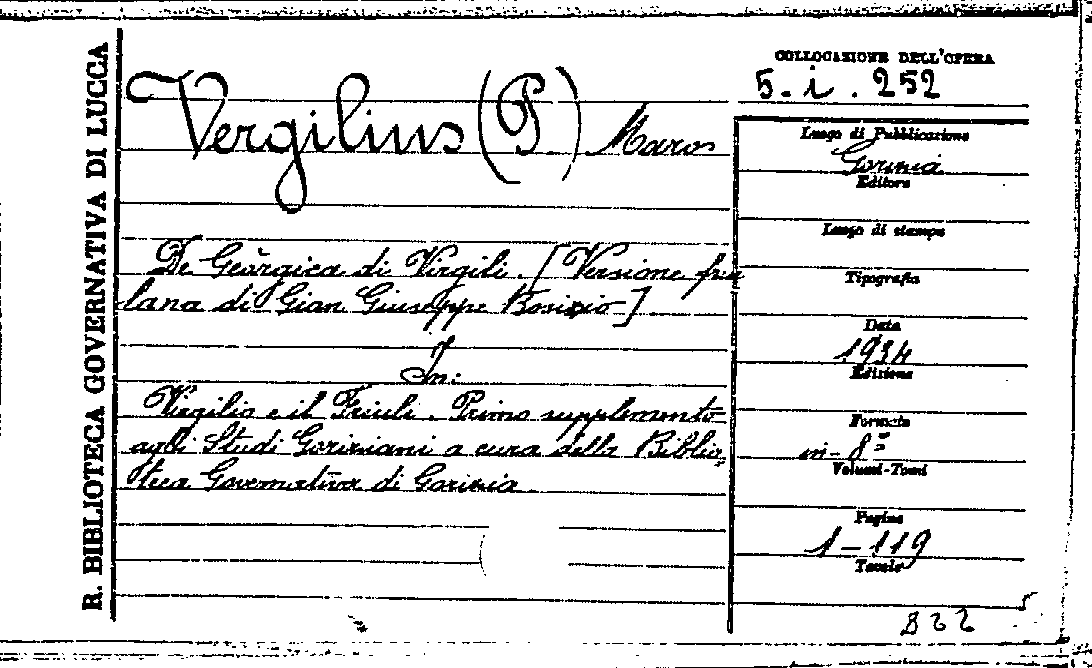 R. BIBLIOTECA GOVERNATIVA DI LUCCA
Vergilius (P.) Maro
De Geòrgica di Virgili. [Versione friu
lana di Gian Giuseppe Bosizio]
In:
Virgilio e il Friuli. Primo supplemento
agli Studi Goriziani a cura della Biblio
teca Governativa di Gorizia
COLLOCAZIONE DELL'OPERA
5. i. 252
Luogo di Pubblicazione
Gorizia
Editore
Luogo di stampa
Tipografia
Data
1934
Edizione
Formato
in-8º
Volumi-Tomi
Pagine
1-119
Tavole
822